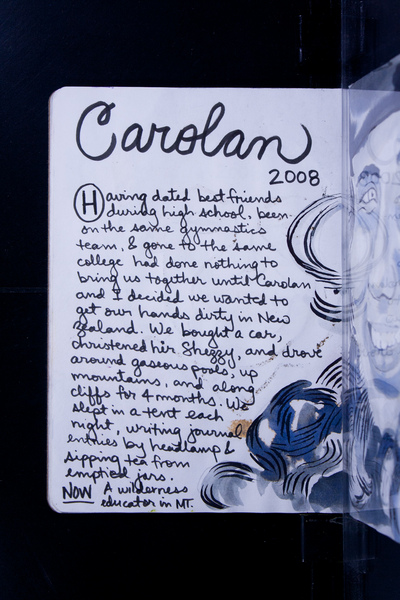 Carolan
2008
Having dated best friends
during high school, been
on the same gymnastics
team, & gone to the same
college had done nothing to
bring us together until Carolan
and I decided we wanted to
get our hands dirty in New
Zealand. We bought a car,
christened her Shezzy, and drove
around gaseous pools, up
mountains, and along
cliffs for 4 months. We
slept in a tent each
night, writing journal
entries by headlamp &
sipping tea from
emptied jars.
NOW A wilderness
educator in MT.